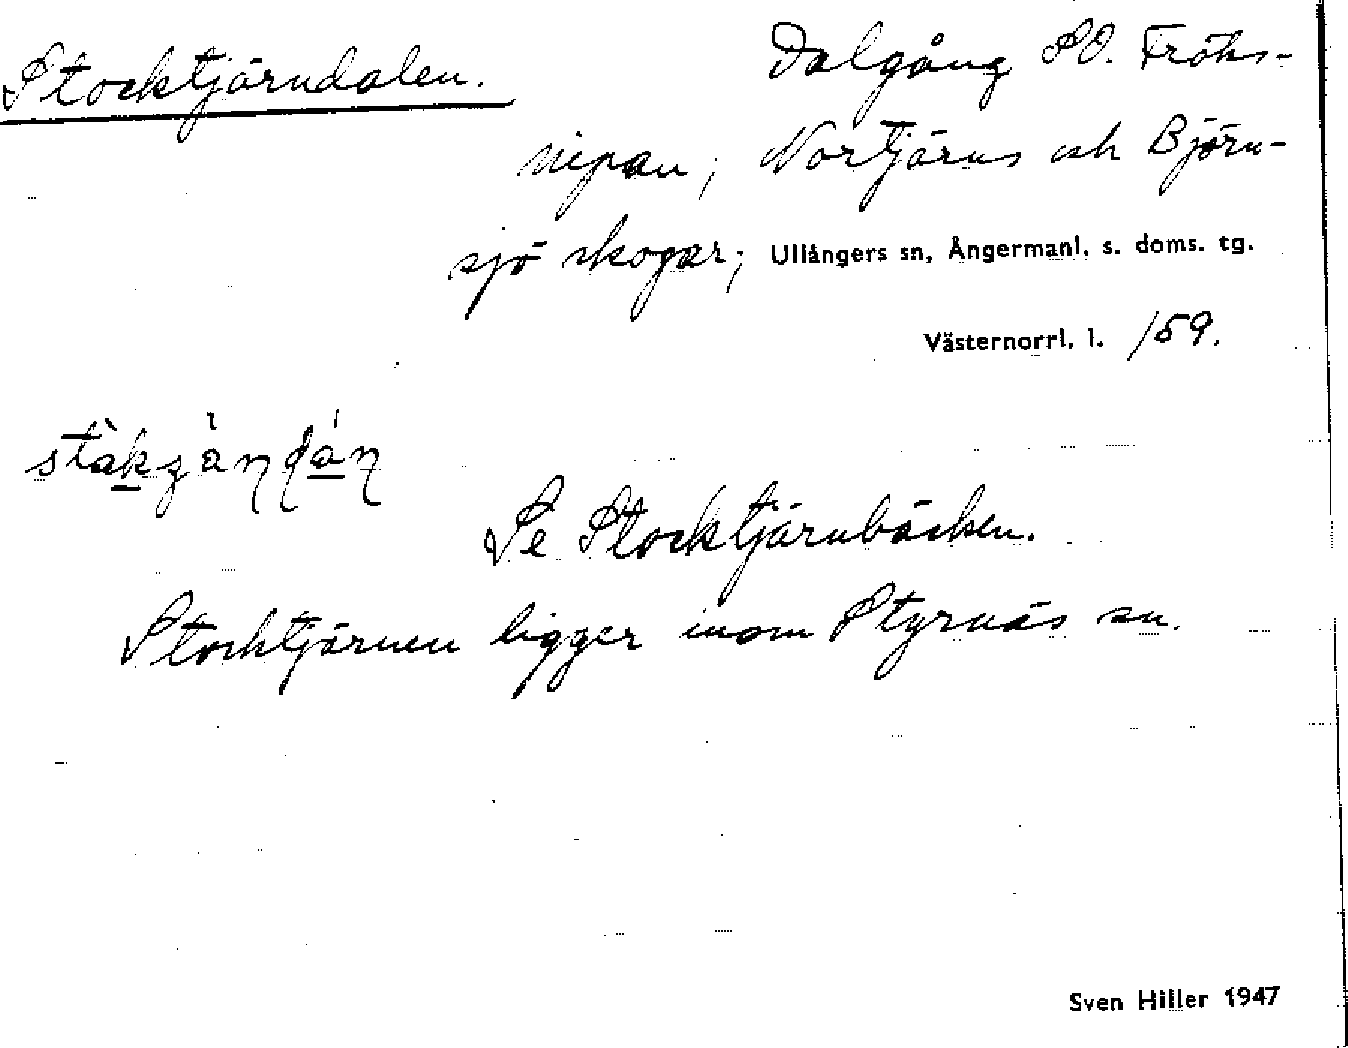 Stocktjärndalen.
Dalgång SO. Fröks-
nipan; Nortjärns och Björn-
sjö skogar; Ullångers sn, Ångermanl. s. doms. tg.
Västernorrl. l. /59.
Se Stocktjärnbäcken.
Stocktjärnen ligger inom Styrnäs sn.
Sven Hiller 1947